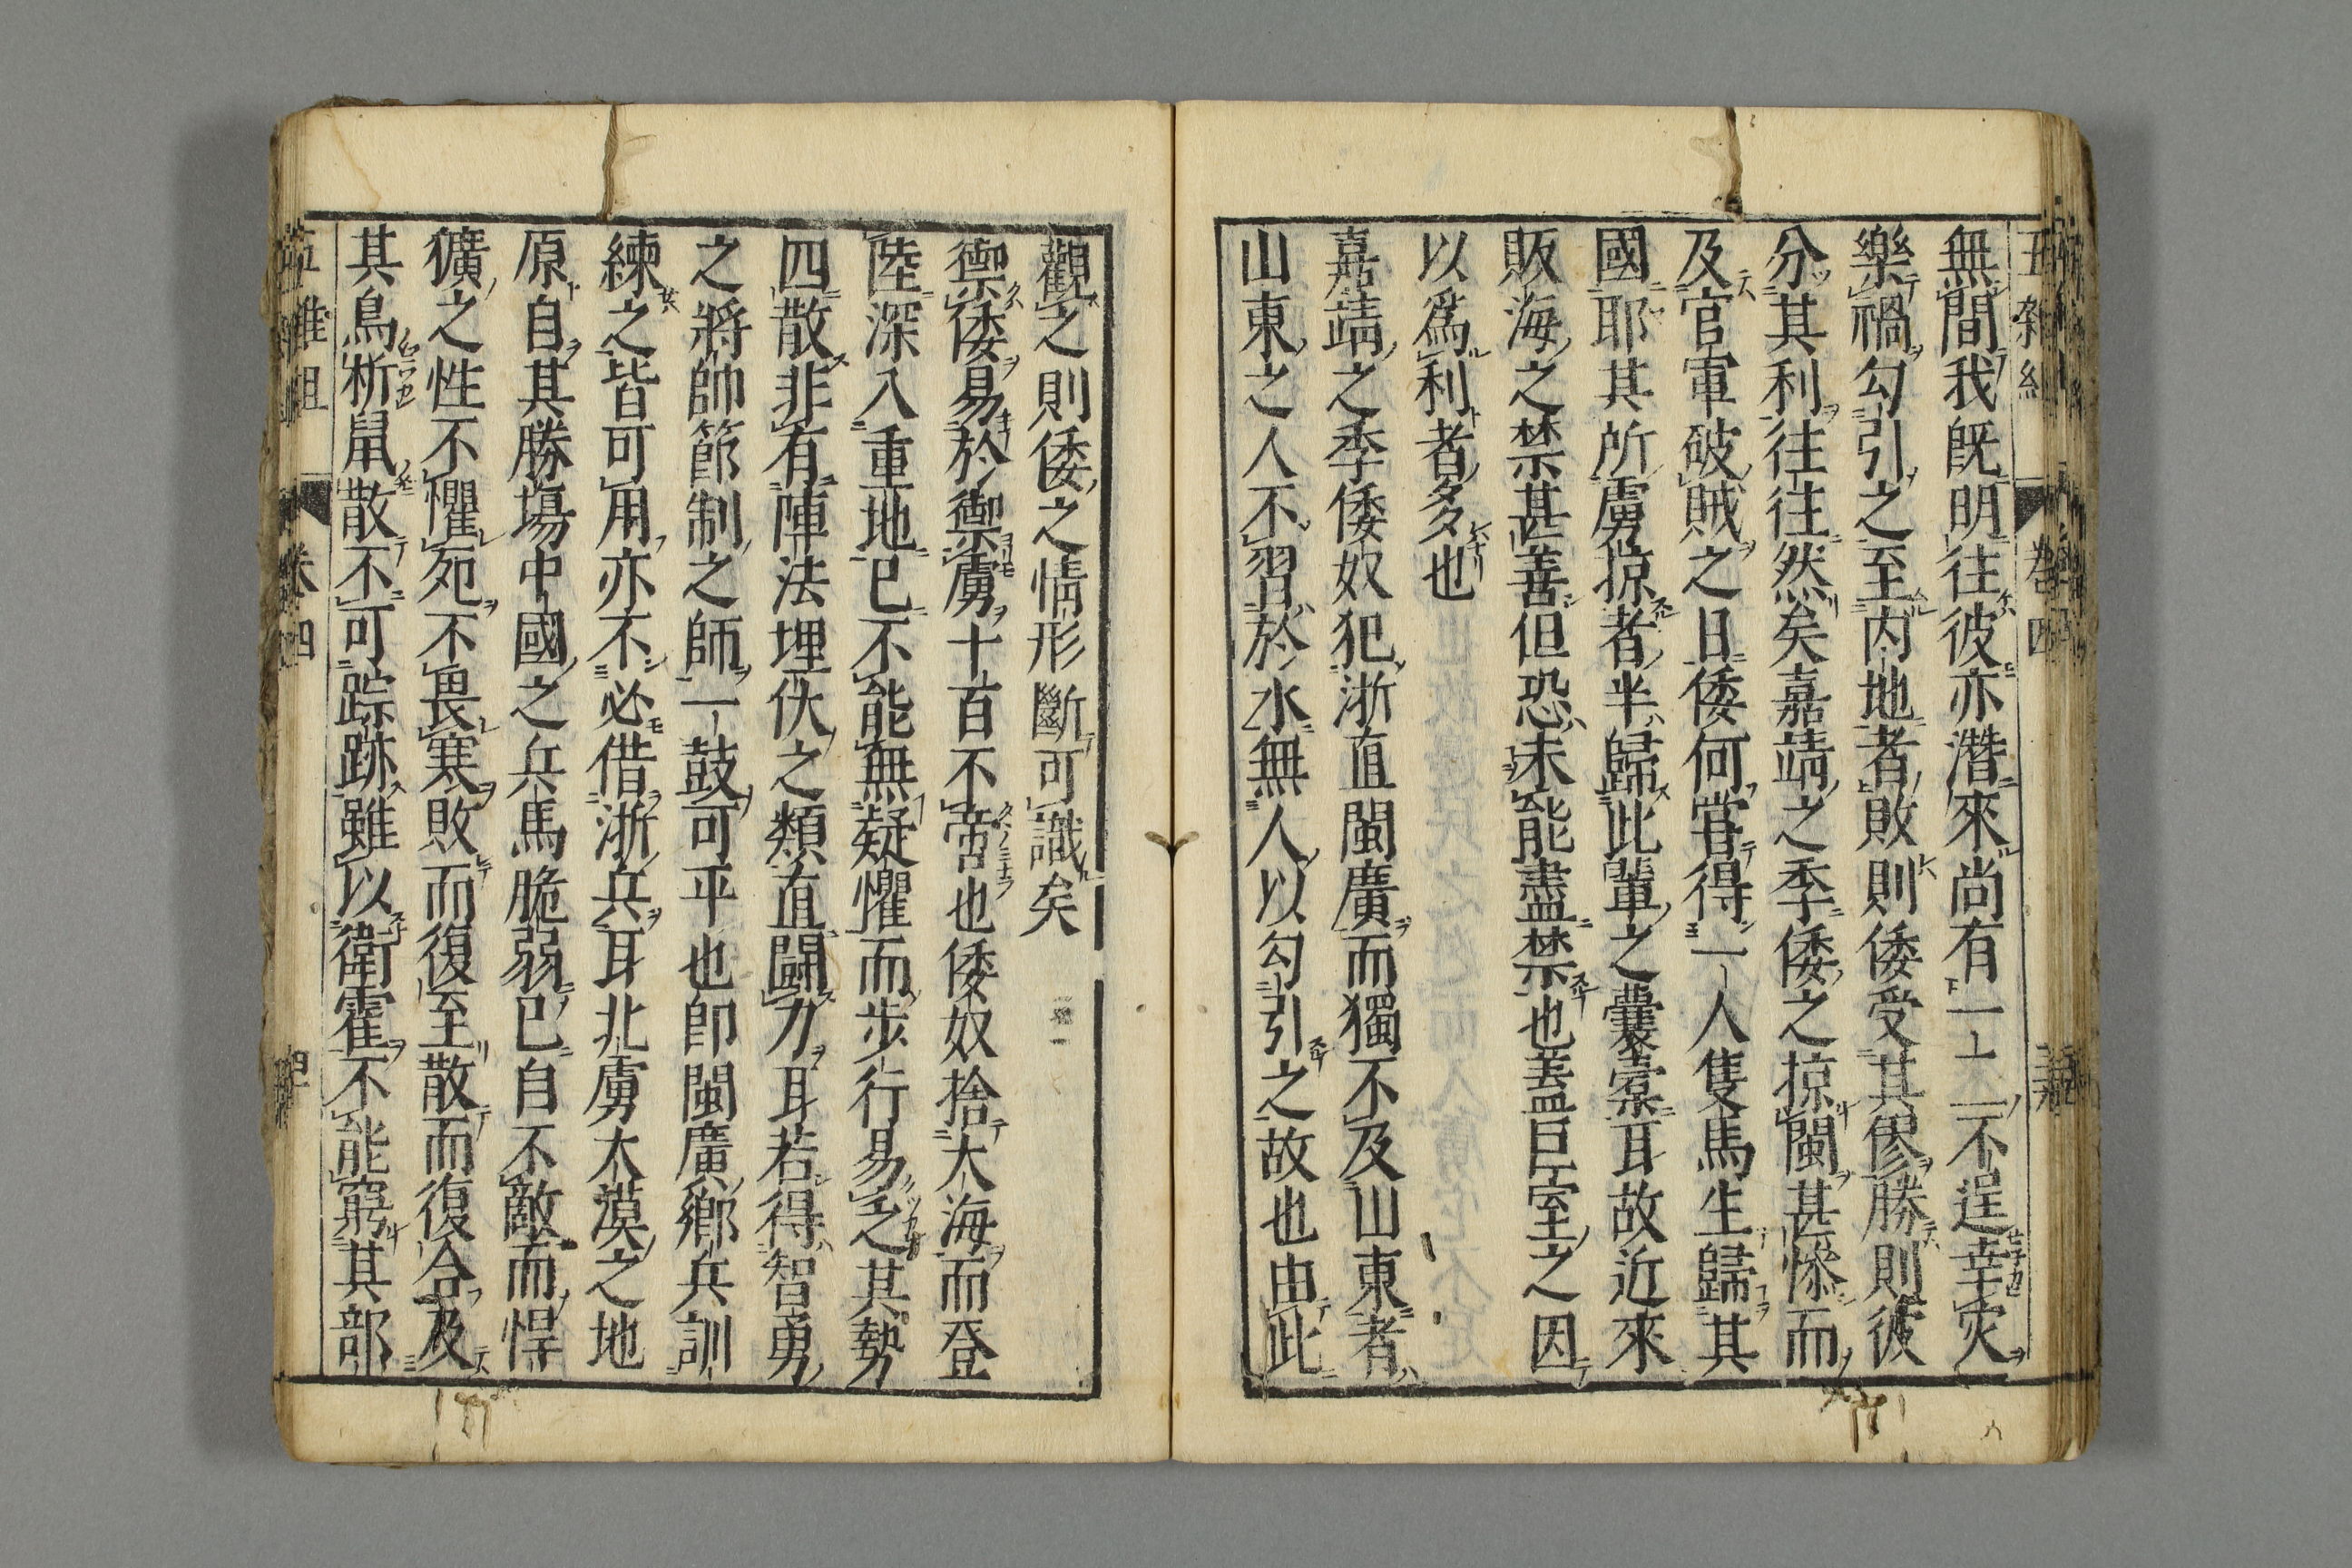 無間我既明往彼亦潛來尚有一二不逞幸灾
樂禍勾引之至内地者敗則倭受其傺勝則彼
分其利往往然矣嘉靖之季倭之掠閩甚慘而
及官軍破賊之日倭何甞得一人隻馬生歸其
國耶其所虜掠者半歸此輩之囊橐耳故近來
販海之禁甚善但恐未能盡禁也蓋巨室之因
以爲利者多也
嘉靖之季倭奴犯浙直閩廣而獨不及山東者
山東之人不習於水無人以勾引之故也由此
觀之則倭之情形斷可識矣
禦倭易於禦虜十百不啻也倭奴捨大海而登
陸深入重地已不能無疑懼而步行易之其勢
四散非有陣法埋伏之類直鬪力耳若得智勇
之將帥節制之師一鼓可平也卽閩廣鄉兵訓
練之皆可用亦不必借浙兵耳北虜大漠之地
原自其勝塲中國之兵馬脆弱已自不敵而悍
獷之性不懼死不畏寒敗而復至散而復合及
其鳥析鼠散不可踪跡雖以衛霍不能窮其部
五雜組 卷四